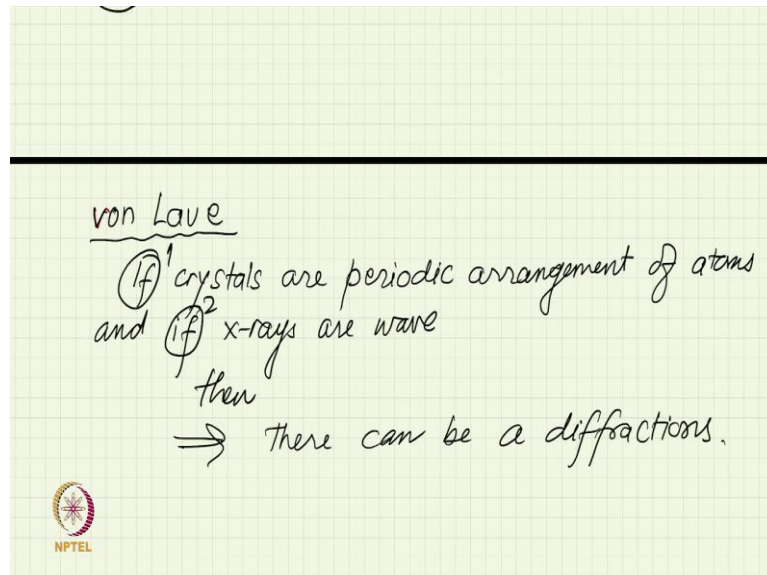 von Laue
If 1 crystals are periodic arrangement of atoms
and if 2 x-rays are wave
then
⇒ there can be a diffractions.
NPTEL